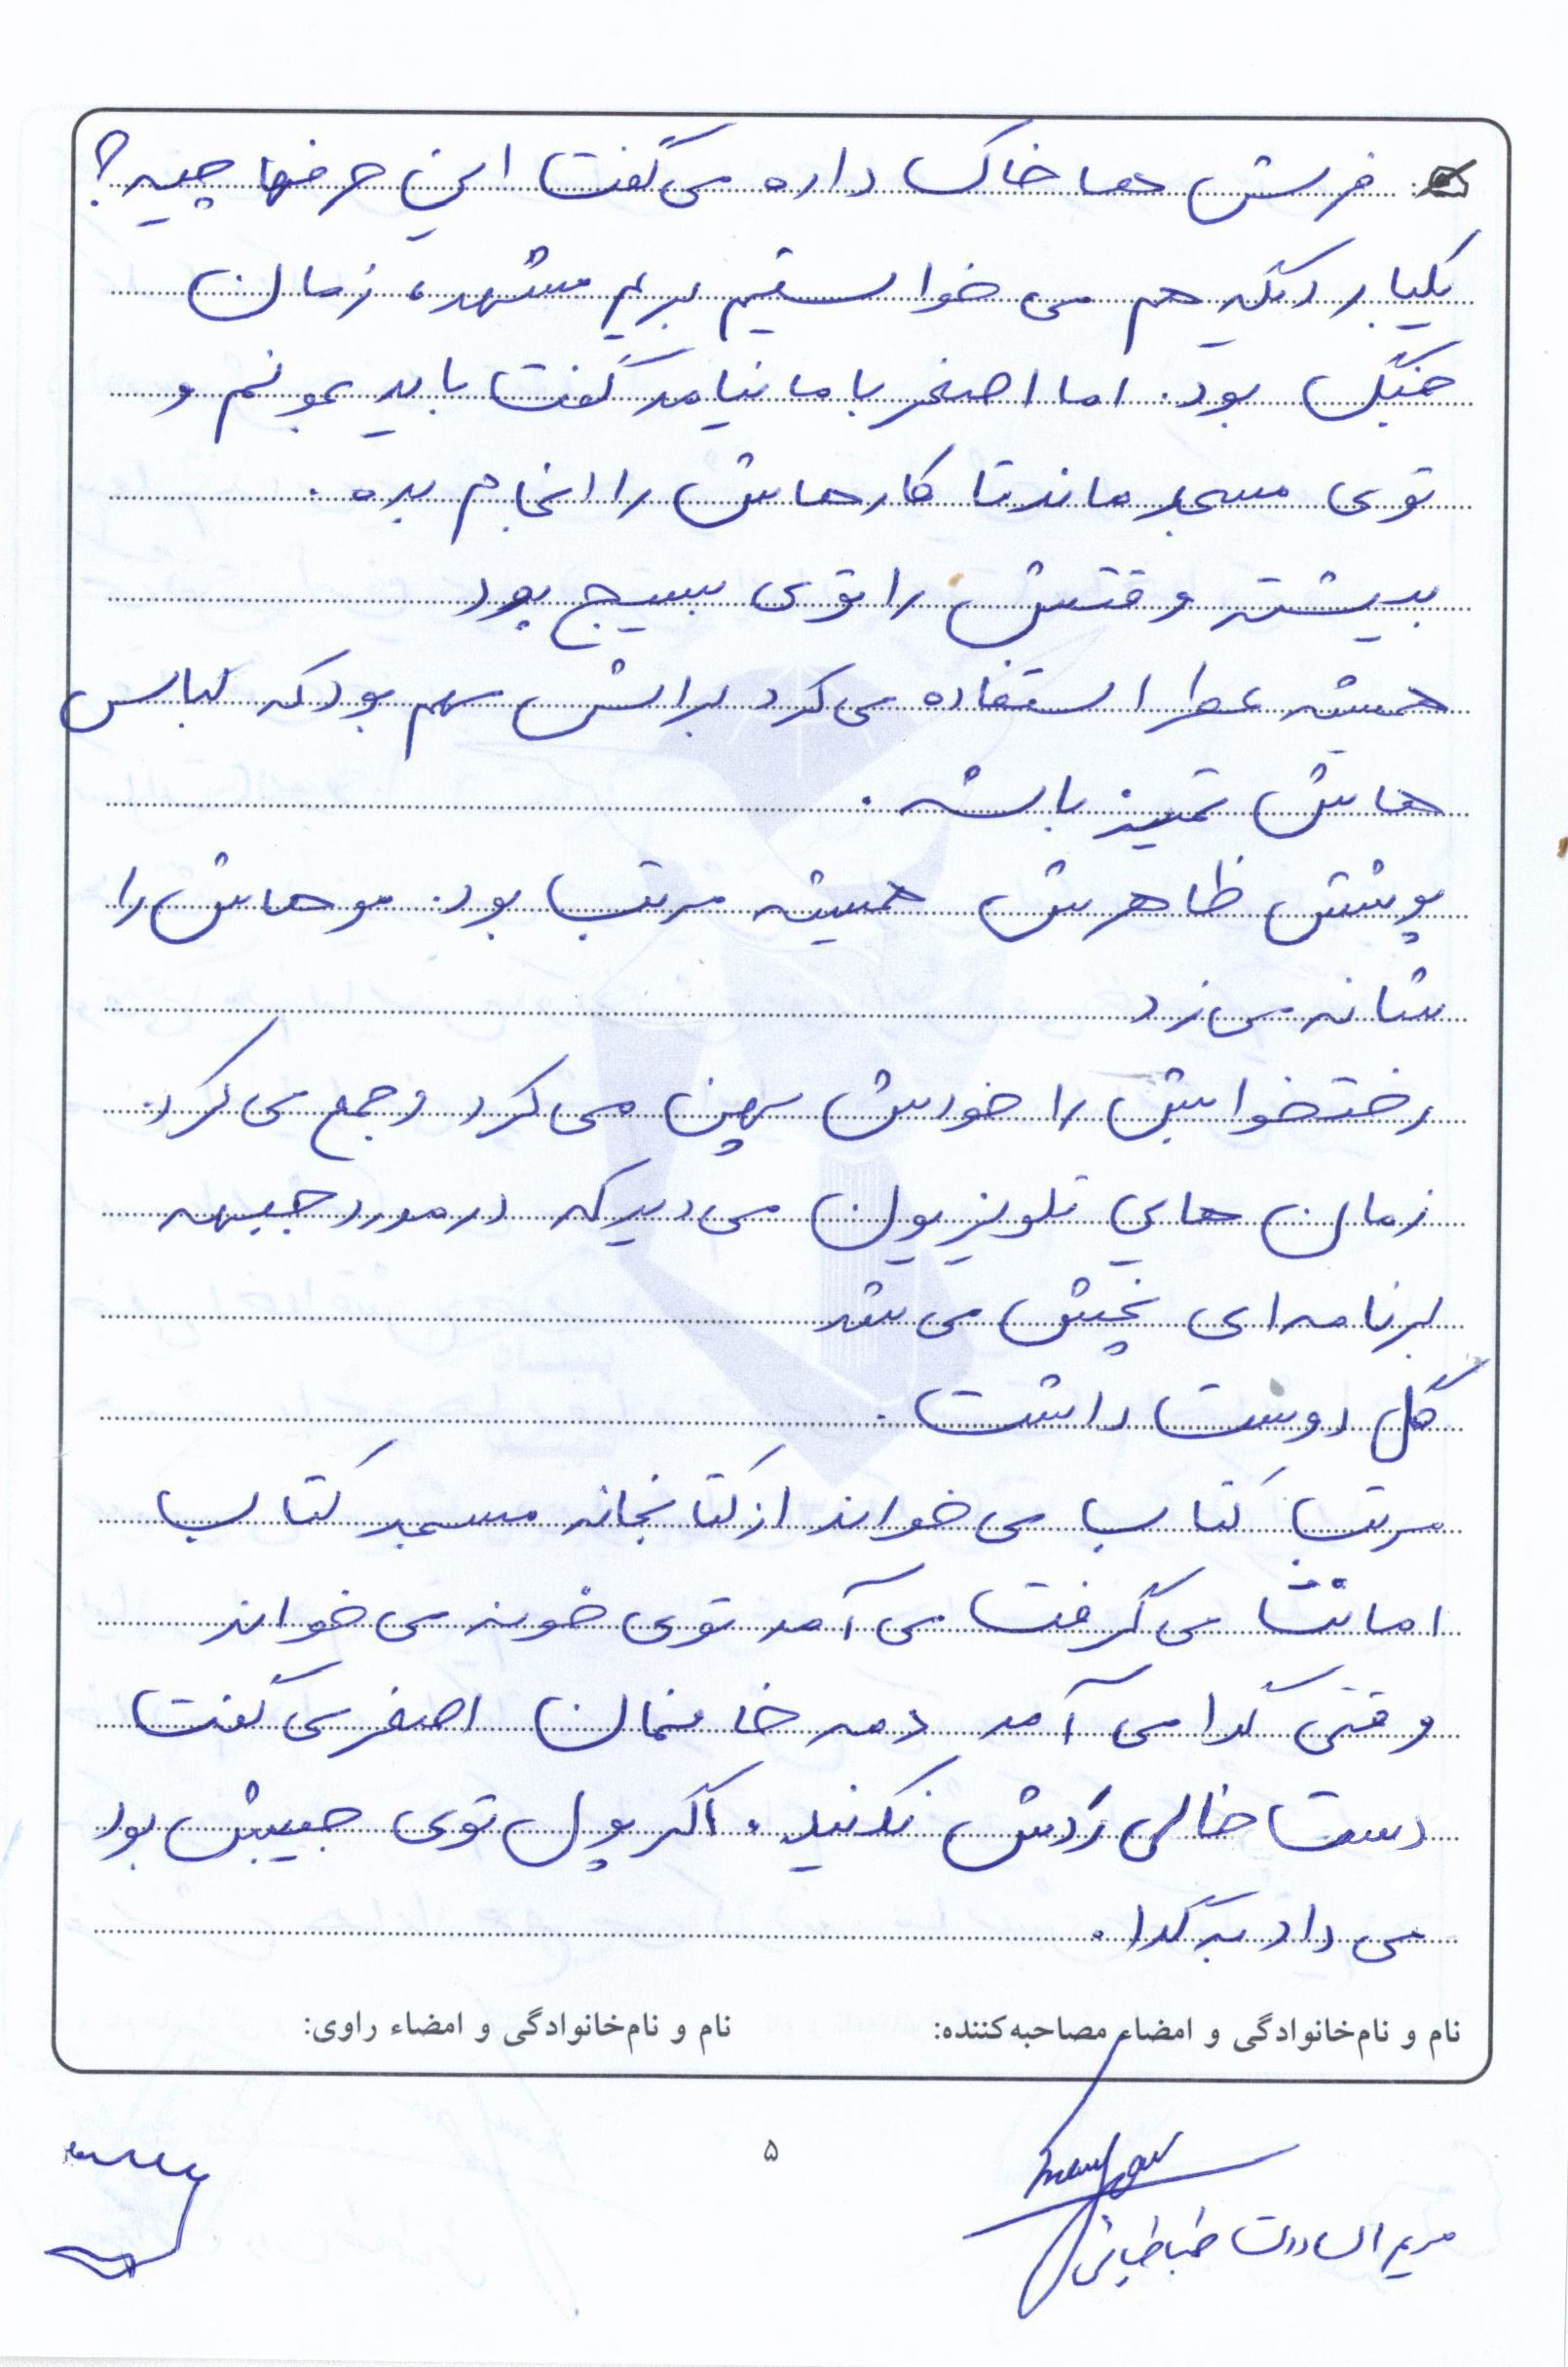 فرش ها خاک داره می گفت این حرفها چیه؟
یکبار دیگه هم می خواستیم بریم مشهد، زمان
جنگ بود. اما اصغر با ما نیامد گفت باید بمونم و
توی مسجد ماند تا کارهاش را انجام بده.
بیشتر وقتش را توی بسیج بود
همیشه عطر استفاده می کرد برایش مهم بود که لباس
هایش تمیز باشه.
پوشش ظاهرش همیشه مرتب بود. موهایش را
شانه می زد
رختخوابش را خودش پهن می کرد و جمع می کرد.
زمان هایی تلویزیون می دید که در مورد جبهه
برنامه ای پخش می شد
گل دوست داشت.
مرتب کتاب می خواند از کتابخانه مسجد کتاب
امانت می گرفت می آمد توی خونه می خواند
وقتی گدا می آمد دمه خانمان اصغر می گفت
دست خالی رَدش نکنید. اگر پول توی جیبش بود
می داد به گدا.
نام و نام‌خانوادگی و امضاء مصاحبه‌کننده: نام و نام‌خانوادگی و امضاء راوی:
۵
مریم السادات طباطبائی